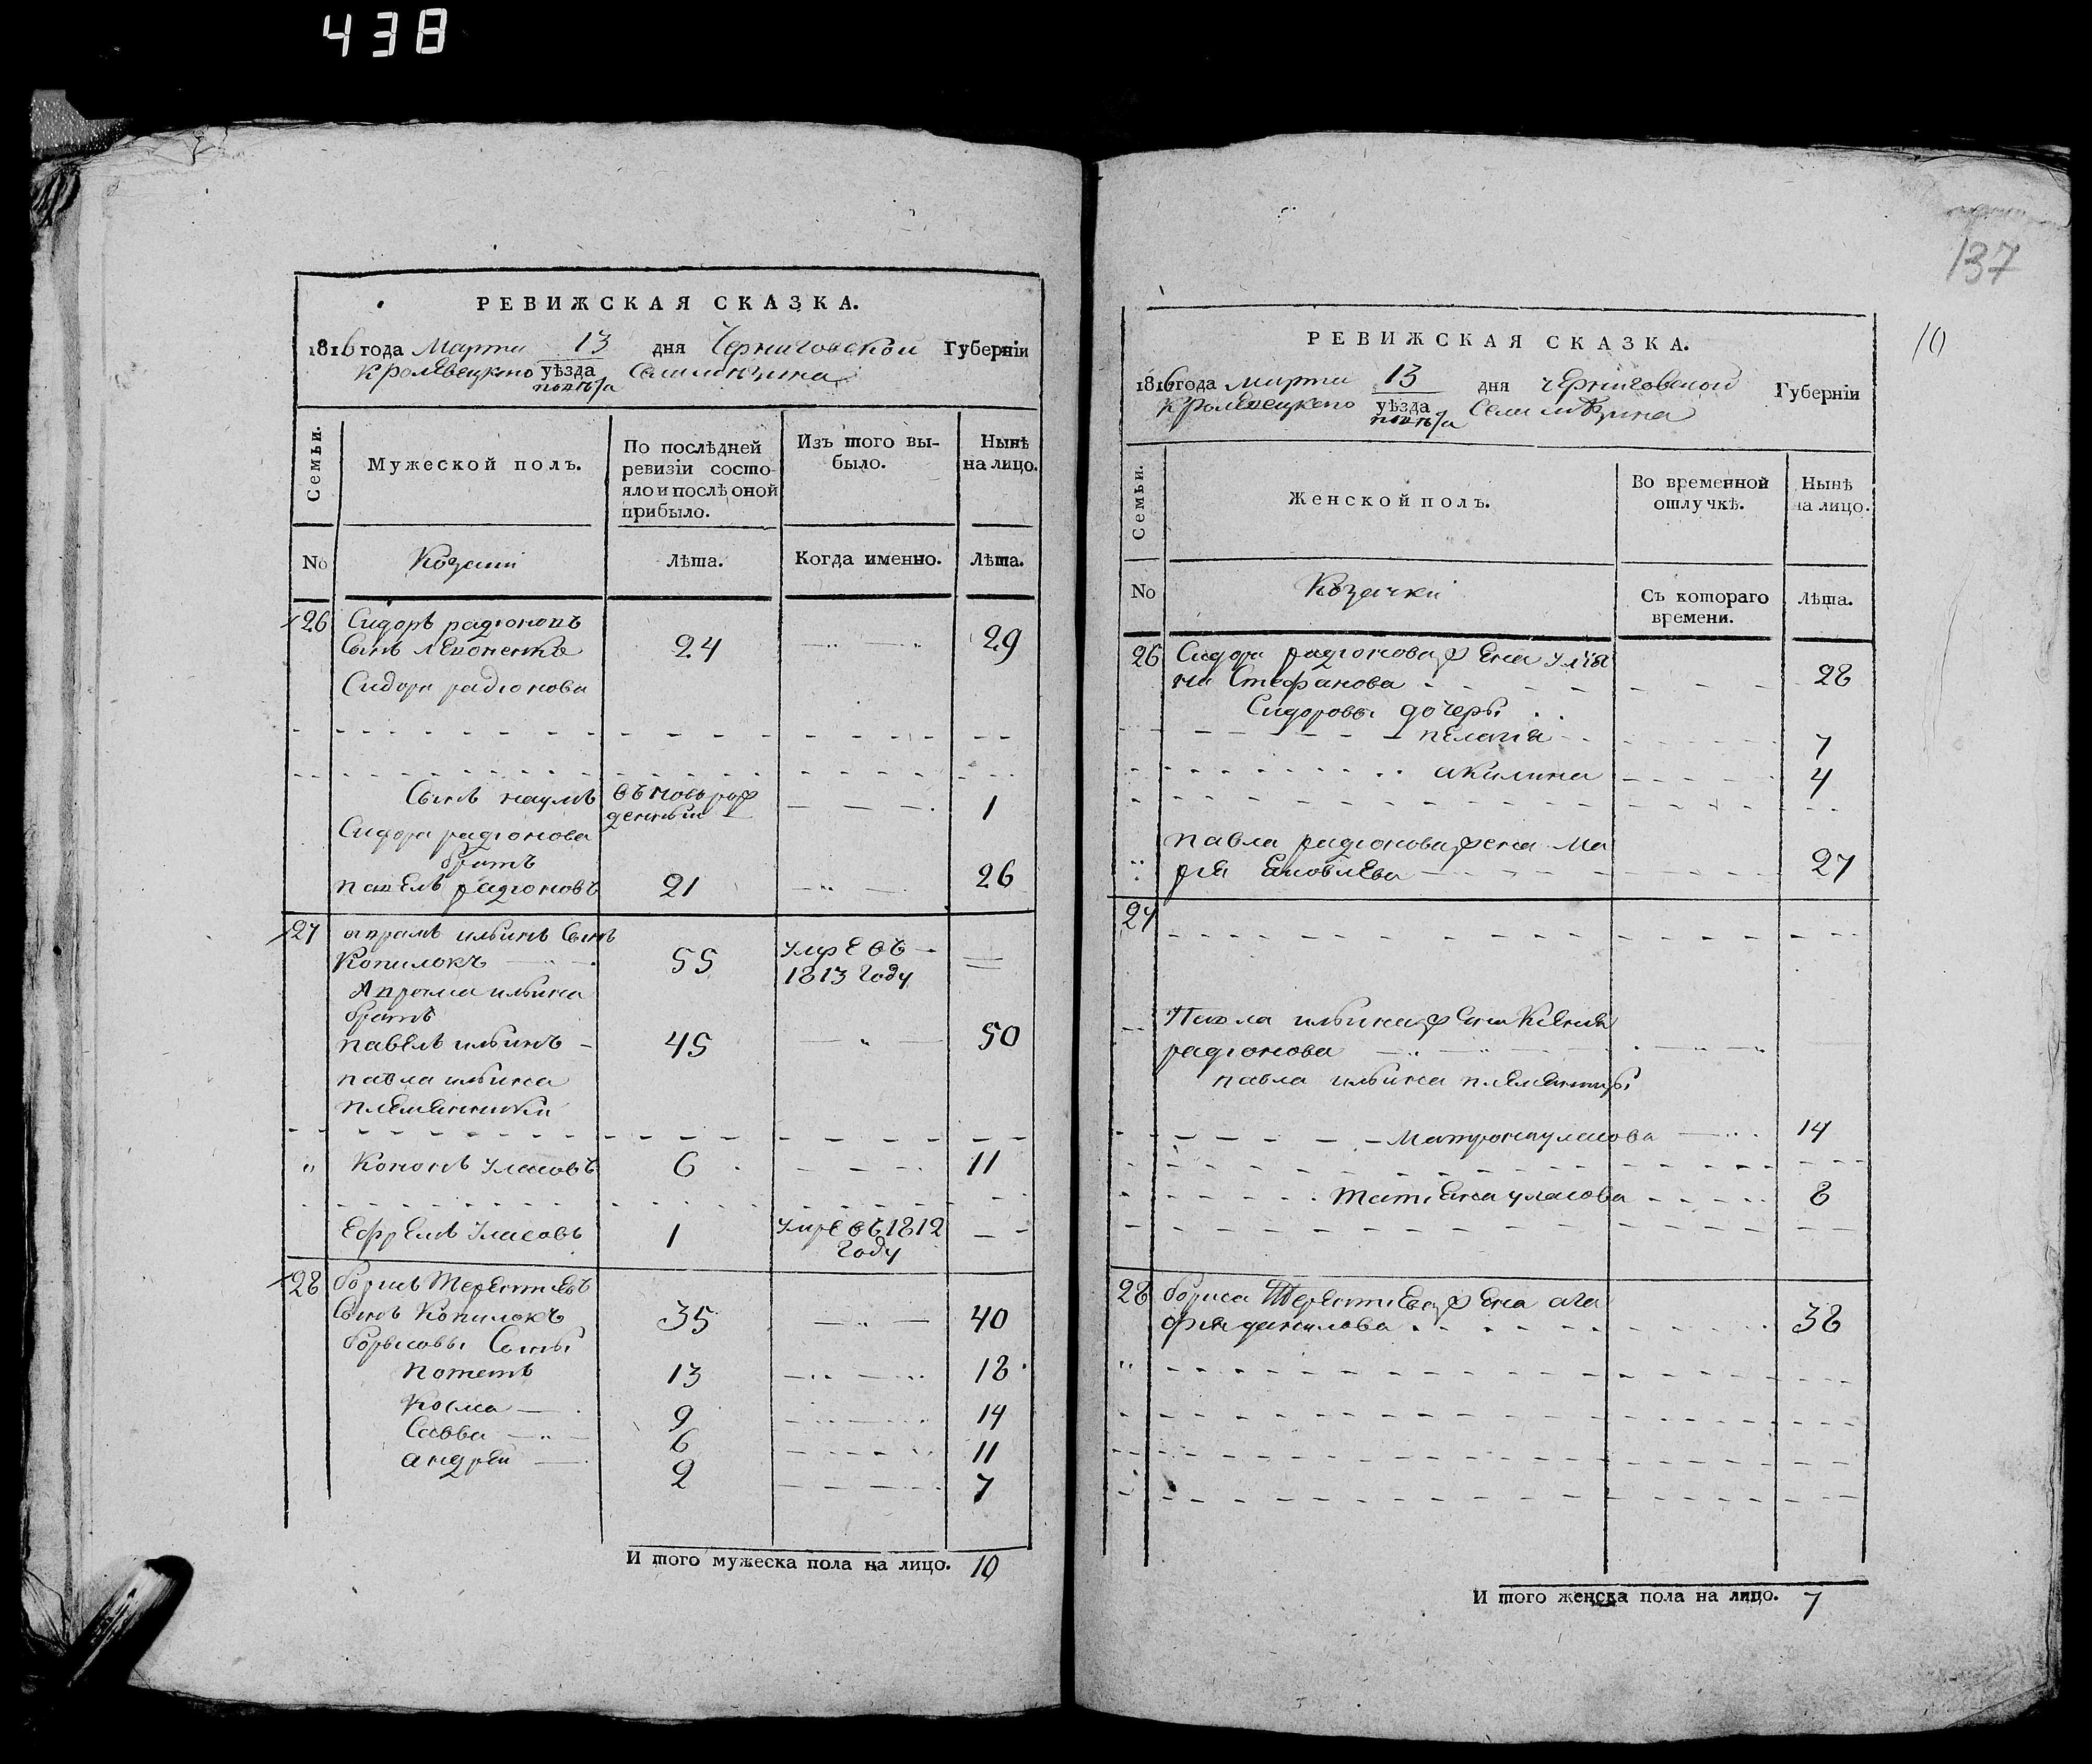 438
РЕВИЖСКАЯ СКАЗКА.
1816 года Марта 13 дня Черниговской Губерніи
Кролевецкого уѣзда
Мужеской полъ.
Семьи.
По послѣдней
ревизіи состо-
яло и послѣ оной
прибыло.
Изъ того вы-
было.
Нынѣ
на лицо.
No
Козаки
Лѣта.
Когда именно.
Лѣта.
26 Сидоръ радіоновъ
Сынъ 24 29
Сидора радіонова
Сынъ наумъ въ новорож
денный 1
Сидора радіонова
братъ
павелъ радіоновъ 21 26
27 ильинъ Сынъ
Копилокъ 55 умре въ
1813 Году
ильина
братъ
павелъ ильинъ 45 50
павла ильина
племянники
Кононъ уласовъ 6 11
Ефремъ уласовъ 1 умре въ 1812
Году
28 борисъ Терентиевъ
Сынъ Копилокъ 35 40
борисовы Сыны
потапъ 13 18
Косма 9 14
Савва 6 11
андрей 2 7
И того мужеска пола на лицо. 10
137
10
РЕВИЖСКАЯ СКАЗКА.
1816 года марта 13 дня черниговской Губерніи
Кролевецкого уѣзда
Семьи.
Женской полъ.
Во временной
отлучкѣ.
Нынѣ
на лицо.
No
Козачки
Съ котораго
времени.
Лѣта.
26 Сидора радіонова жена улия
на Стефанова 28
Сидоровы дочеры
пелагія 7
акилина 4
павла радіонова жена Ма
рія Яковлева 27
27
Павла ильина жена Ксения
радіонова
павла ильина племянницы
Матрона уласова 14
татіяна уласова 8
28 бориса Терентиева жена ага
фия данилова 38
И того женска пола на лицо. 7